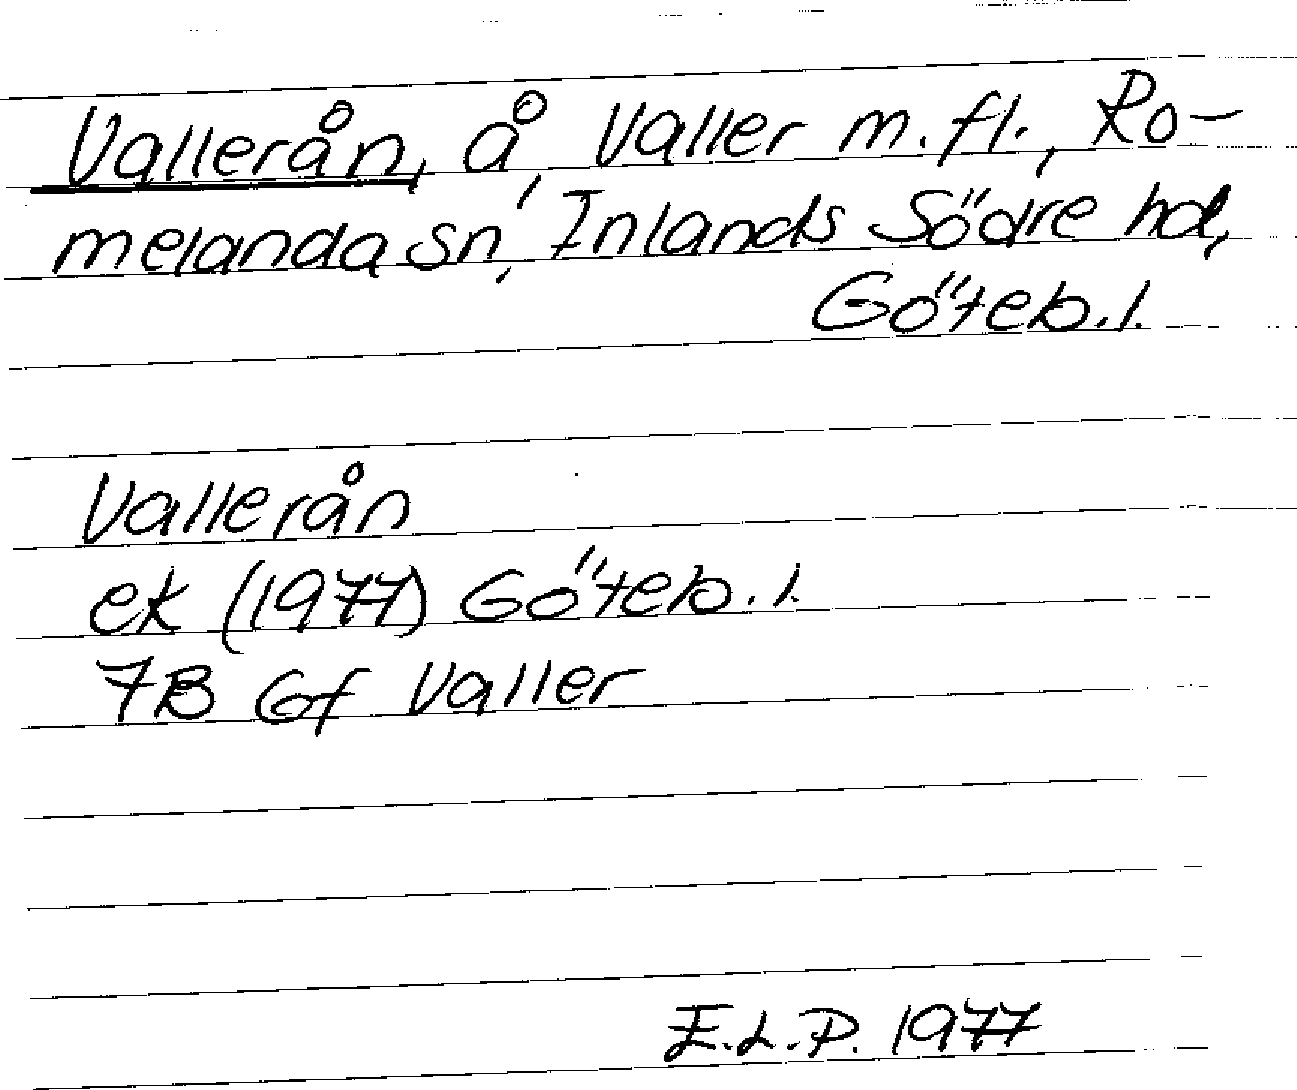 Vallerån, å, Valler m.fl., Ro-
melanda sn, Inlands Södre hd,
Göteb.l.
Vallerån
ek (1977) Göteb.l.
7B Gf Valler
E.L.P. 1977